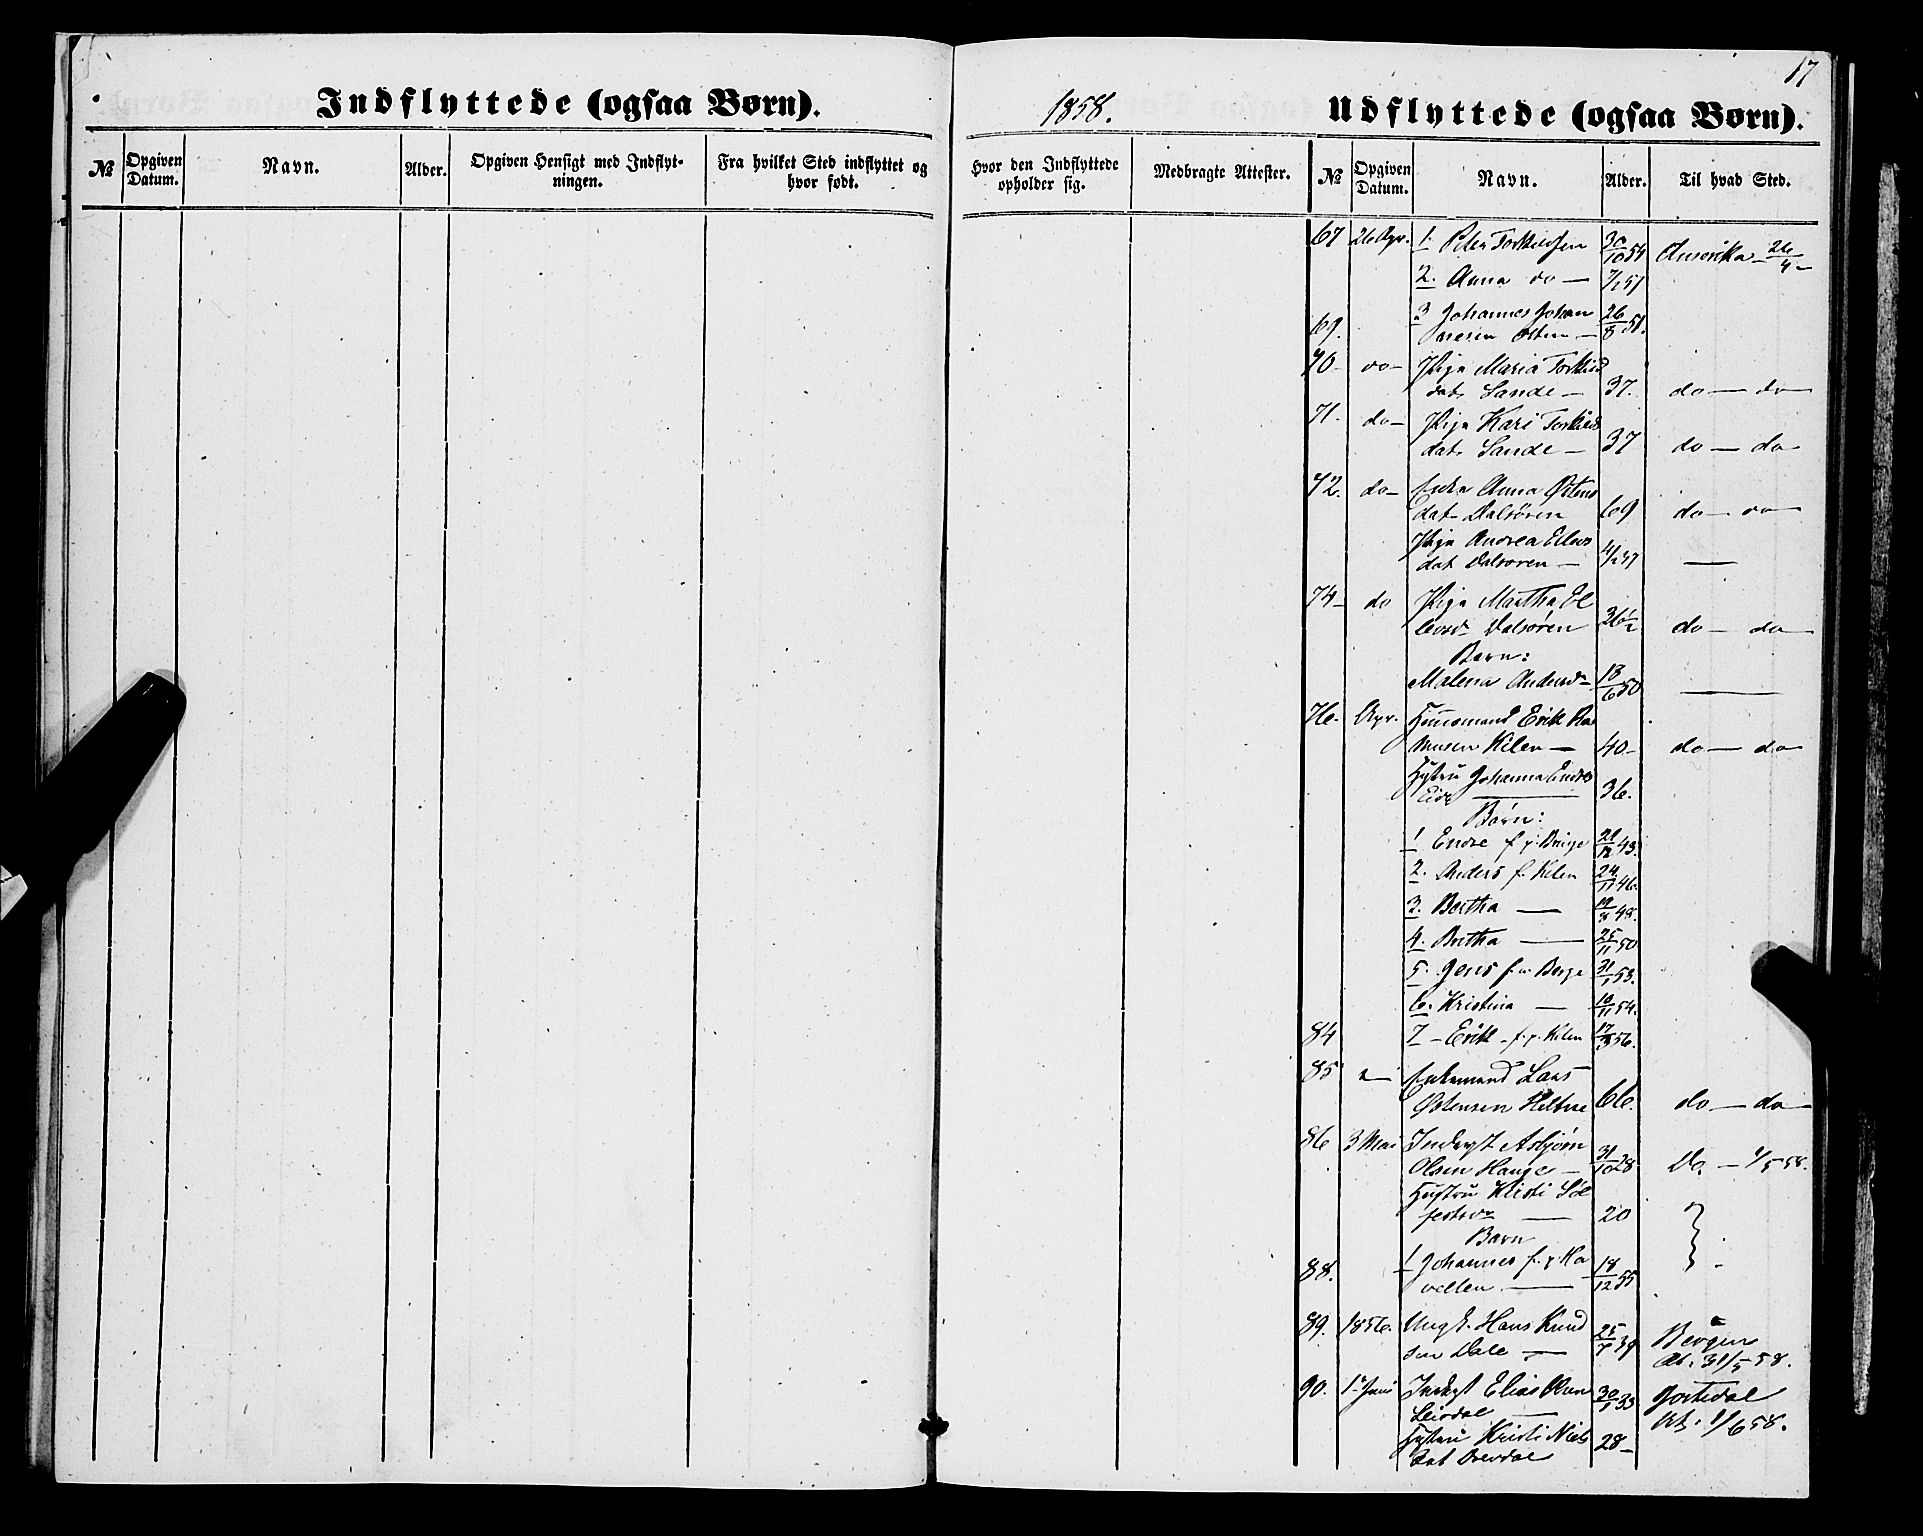 17
Indflyttede (ogsaa Børn).
1858.
Udflyttede (ogsaa Børn).
№
Opgiven Datum.
Navn.
Alder.
Opgiven Hensigt med Indflyt-
ningen.
Fra hvilket Sted indflyttet og
hvor født.
Hvor den Indflyttede
opholder sig.
Medbragte Attester.
№
Opgiven Datum.
Navn.
Alder.
Til hvad Sted.
67 26 Apr. 1. Peter Torkildsen 30/10 54 Amerika - 26/4 -
2. Anna do — 7/1 57
69. 3 Johannes Johan
nesen — 26/8 51.
70- do- Pige Maria Torkils
dat. Sande — 37. do — do
71- do- Pige Kari Torkils
dat. Sande — 37 do — do
72. do- Enke Anna Østens
dat. Dalsøren 69 do — do
Pige Andrea Ellevs
dat Dalsøren —
74- do Pige Martha El
levsd. Dalsøren 36½ do — do
Barn:
Malena Andersd. 13/6 50 —
76. Apr. Huusmand Erik Ra
smusen Kilen — 40- do — do
Hustru Johanna Endres
Eide 36.
Børn:
1 Endre f. p. 21/12 43.
2. Anders f. Kilen 24/11 46.
3. Bertha — 19/8 48.
4. Britha — 25/11 50
5. Jens f. Berge 31/1 53.
6. Kristina — 10/11 54.
84 7 - Erik - f. p. Kilen 17/3 56.
85 Enkemand Lars
Østensen Heltne 66. do — do
86 3 Mai Inderst Asbjørn
Olsen Hauge — 31/10 28 Do. - 1/5 58.
Hustru Kristi Sol
festsd. — 20
Barn
88. 1 Johannes f. p. Ha
— 18/12 55
89. 1856. Ungk. Hans Knud
sen Dale — 25/7 39 Bergen
At. 31/5 58.
90. 1 Juni Inderst Elias
Leirdal — 30/5 33 Jostedal
At. 1/6 58.
Hustru Kristi Niels
dat 28-